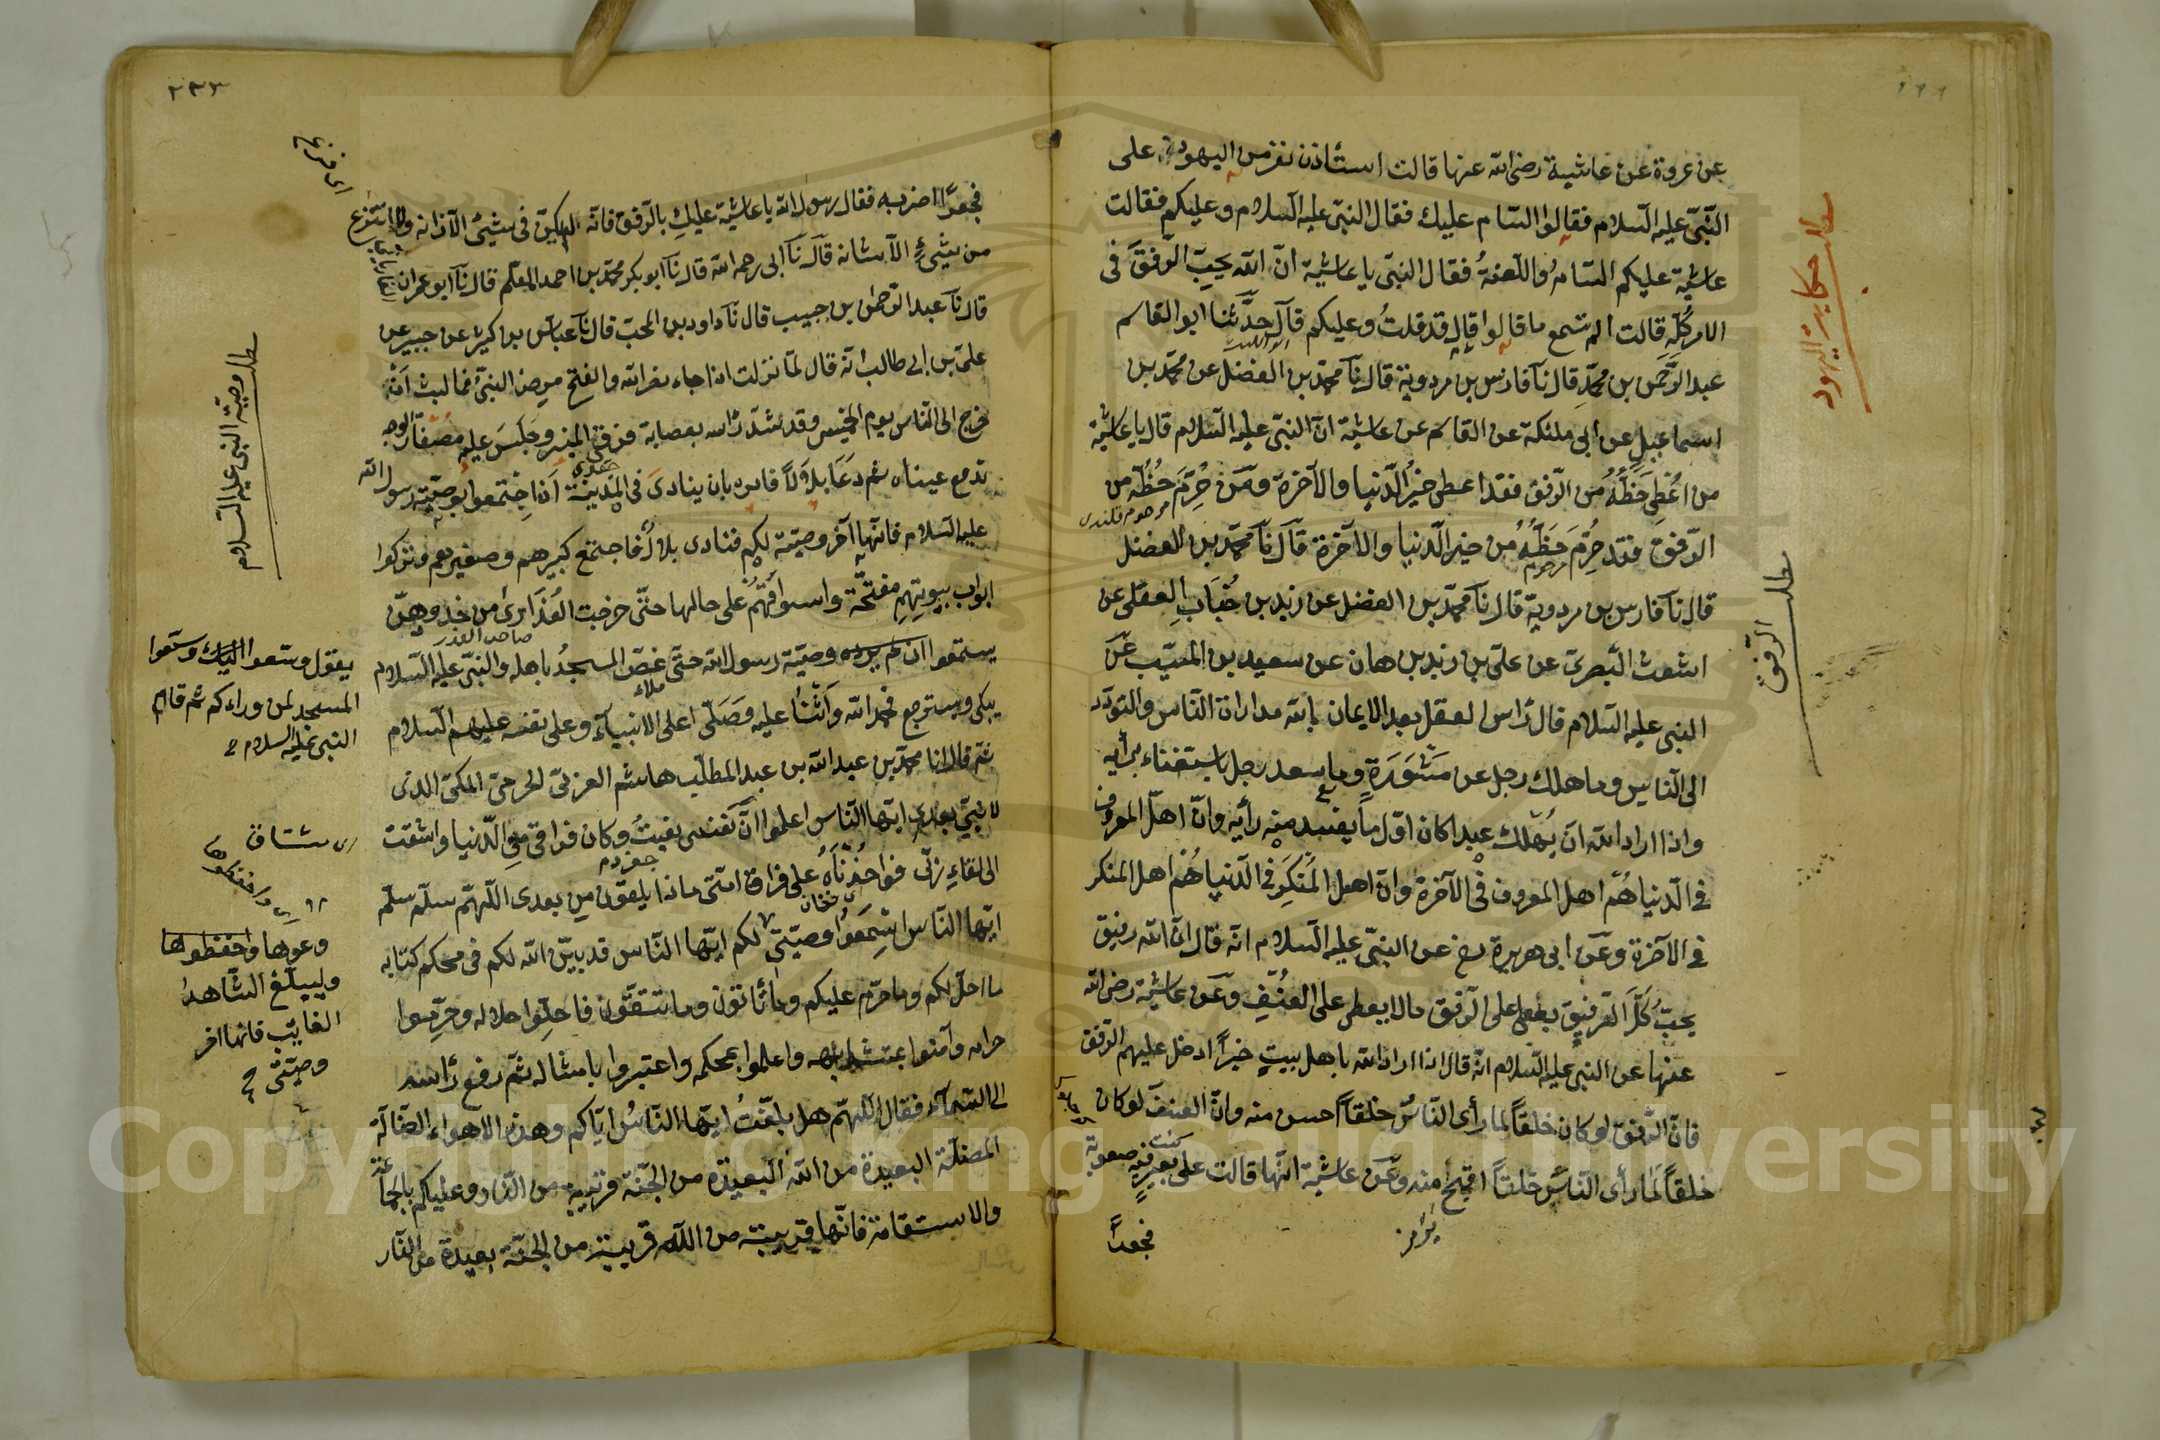 عن عروة عن عائشة رضى الله عنها قالت استأذن نفر من اليهود على
النبى عليه السلام فقالوا السام عليك فقال النبى عليه السلام وعليكم فقالت
عائشة عليكم السام واللعنة فقال النبى يا عائشة ان الله يحب الرفق فى
الامر كله قالت الم تسمع ما قالوا قال قد قلت وعليكم قال حدثنا ابو القاسم
عبد الرحمن بن محمد قال نا فارس بن مردوية قال نا محمد بن الفضل عن محمد بن
اسماعيل عن ابى مليكة عن القاسم عن عائشة ان النبى عليه السلام قال يا عائشة
من اعطى حظه من الرفق فقد اعطى خير الدنيا والآخرة ومن حرم حظه من
الرفق فقد حرم حظه من خير الدنيا والآخرة قال نا محمد بن الفضل
قال نا فارس بن مردوية قال نا محمد بن الفضل عن زيد بن حباب العقلى عن
اشعث البصرى عن على بن زيد بن هان عن سعيد بن المسيب عن
النبى عليه السلام قال رأس العقل بعد الايمان بالله مدارات الناس والتودد
الى الناس وما هلك رجل عن مشورة وما سعد رجل باستغناء برأيه
واذا اراد الله ان يهلك عبدا كان اول ما يفسد منه رأيه وان اهل المعروف
فى الدنيا هم اهل المعروف فى الآخرة وان اهل المنكر فى الدنيا هم اهل المنكر
فى الآخرة وعن ابى هريرة رضع عن النبى عليه السلام انه قال ان الله رفيق
يحب كل الرفيق يعطى على الرفق ما لا يعطى على العنف وعن عائشة رضى الله
عنها عن النبى عليه السلام انه قال اذا اراد الله باهل بيت خيرا ادخل عليهم الرفق
فان الرفق لو كان خلقا لما رأى الناس خلقا احسن منه وان العنف لو كان
خلقا لما رأى الناس خلقا اقبح منه وعن عائشة انها قالت كنت على بعير فيه صعوبة
فجعدا
مطلب حكاية اليهود
مطلب الرفق
٢٣٣
فجعدا اضربه فقال رسول الله يا عائشة عليك بالرفق فانه لم يكن فى شيئ الا زانه ولا انتزع
من شيئ الا شانه قال نا ابى رحمه الله قال نا ابو بكر محمد بن احمد المعلم قال نا ابو عمران
قال نا عبد الرحمن بن حبيب قال نا داود بن المحب قال نا عباس بن كثير عن جبير عن
على بن ابى طالب انه قال لما نزلت اذا جاء نصر الله والفتح مرض النبى فما لبث ان
خرج الى الناس يوم الخميس وقد شد رأسه بعصابة فرقى المنبر وجلس عليه مصفار الوجه
تدمع عيناه ثم دعا بلالا فامره بان ينادى فى المدينة ان اجتمعوا بوصية رسول الله
عليه السلام فانها آخر وصية لكم فنادى بلال فاجتمع كبيرهم وصغيرهم وتركوا
ابواب بيوتهم مفتحة واسواقهم على حالها حتى خرجت العذارى من خدورهن
يستمعوا وصية رسول الله حتى غص المسجد باهله والنبى عليه السلام
يبكى ويسترجع فحمد الله واثنا عليه وصلى على الانبياء وعلى نفسه عليهم السلام
ثم قال انا محمد بن عبد الله بن عبد المطلب هاشم العربى الحرمى المكى الذى
لا نبى بعدى ايها الناس اعلموا ان نفسى نعيت وكان فراقى من الدنيا واشتقت
الى لقاء ربى فواحزناه على فراق امتى ماذا يلقون من بعدى اللهم سلم سلم
ايها الناس اسمعوا وصيتى لكم ايها الناس قد بين الله لكم فى محكم كتابه
ما احل لكم وما حرم عليكم وما تأتون وما تتقون فاحلوا حلاله وحرموا
حرامه وآمنوا بمتشابهه واعلموا بمحكمه واعتبروا بامثاله ثم رفع رأسه
الى السماء فقال اللهم هل بلغت ايها الناس اياكم وهذه الاهواء الضالة
المضلة البعيدة من الله البعيدة من الجنة قريبة من النار وعليكم بالجماعة
والاستقامة فانها قريبة من الله قريبة من الجنة بعيدة من النار
مطلب وصية النبى عليه السلام
يقول وسعوا وسعوا
المسجد لمن وراءكم ثم قام
النبى عليه السلام
وعوها واحفظوها
وليبلغ الشاهد
الغايب فانها اخر
وصيتى
Copyright © King Saud University